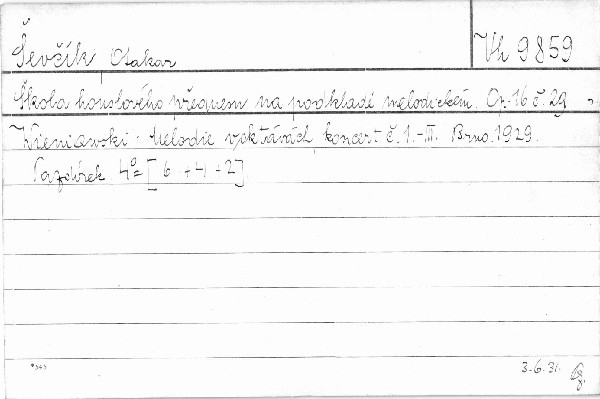 Ševčík Otakar
Vh 9859
Škola houslového přednesu na podkladě melodickém. Op. 16 č. 29
Wieniawski: Melodie v oktávách, koncert č. 1.-III. Brno. 1929.
Pazdírek 4° [6 + 4 + 2]
3.-6. 31.